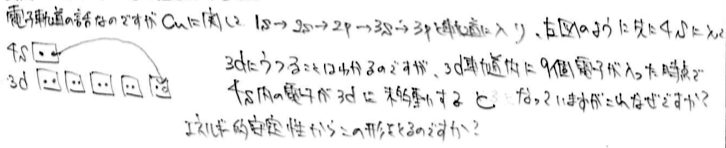 電子軌道の話なのですがCuに関して 1s→2s→2p→3s→3pと軌道に入り、左図のように先に4sに入って
4s
3dにうつることはわかるのですが、3d軌道内に9個電子が入った時点で
3d
4s内の電子が3dに移動すると なっていますがこれはなぜですか？
エネルギー的安定性からこの形をとるのですか？